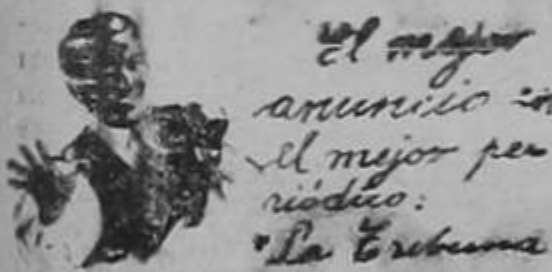 El mejor
anuncio en
el mejor per
riódico:
"La Tribuna